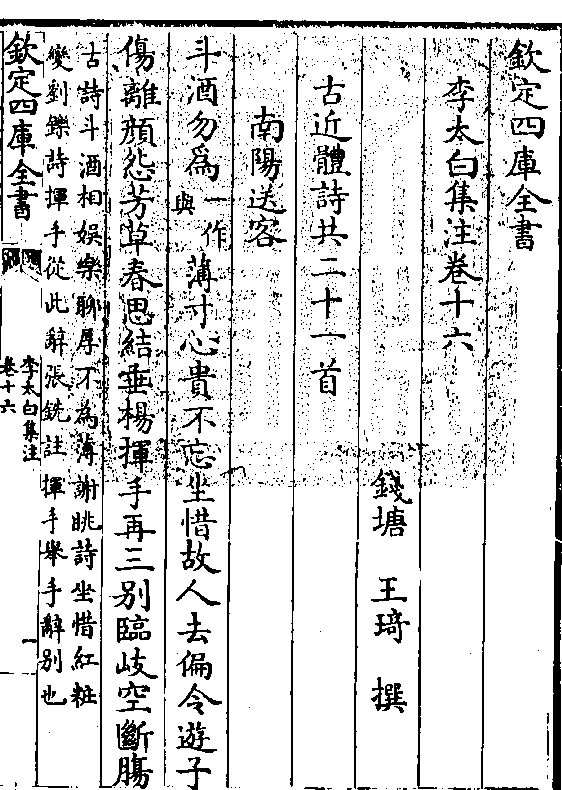 欽定四庫全書
李太白集注卷十六
錢塘 王琦 撰
古近體詩共二十一首
南陽送客
斗酒勿為一作與薄寸心貴不忘坐惜故人去偏令遊子
傷離顔怨芳草春思結垂楊揮手再三別臨岐空斷腸
古詩斗酒相娯樂聊厚不為薄謝眺詩坐惜紅粧
變劉鑠詩揮手從此辭張銑註揮手舉手辭別也
欽定四庫全書
李太白集注
卷十六
一